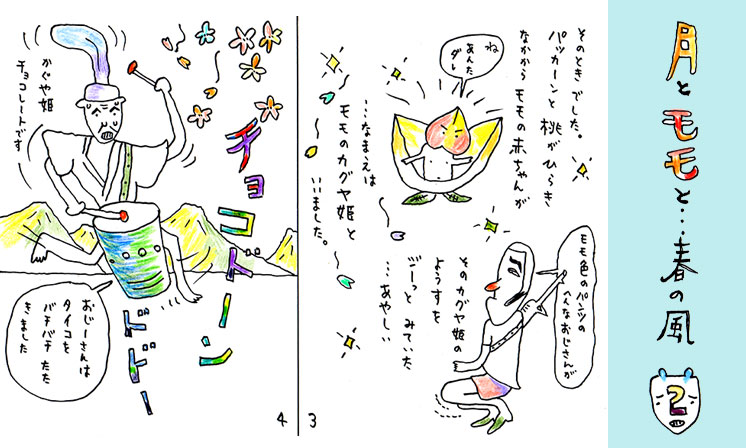 月とモモと…春の風
2
そのときでした。
パッカーンと桃がひらき
なかからモモの赤ちゃんが
ね
あんた
ダレ
…なまえは
モモのカグヤ姫と
いいました。
モモ色のパンツの
へんなおじさんが
そのカグヤ姫の
ようすを
ジーっとみていた
…あやしい
3
かぐや姫
チョコレートです
チョコドーン
ドドドー
おじーさんは
タイコを
バチバチたた
きました
4